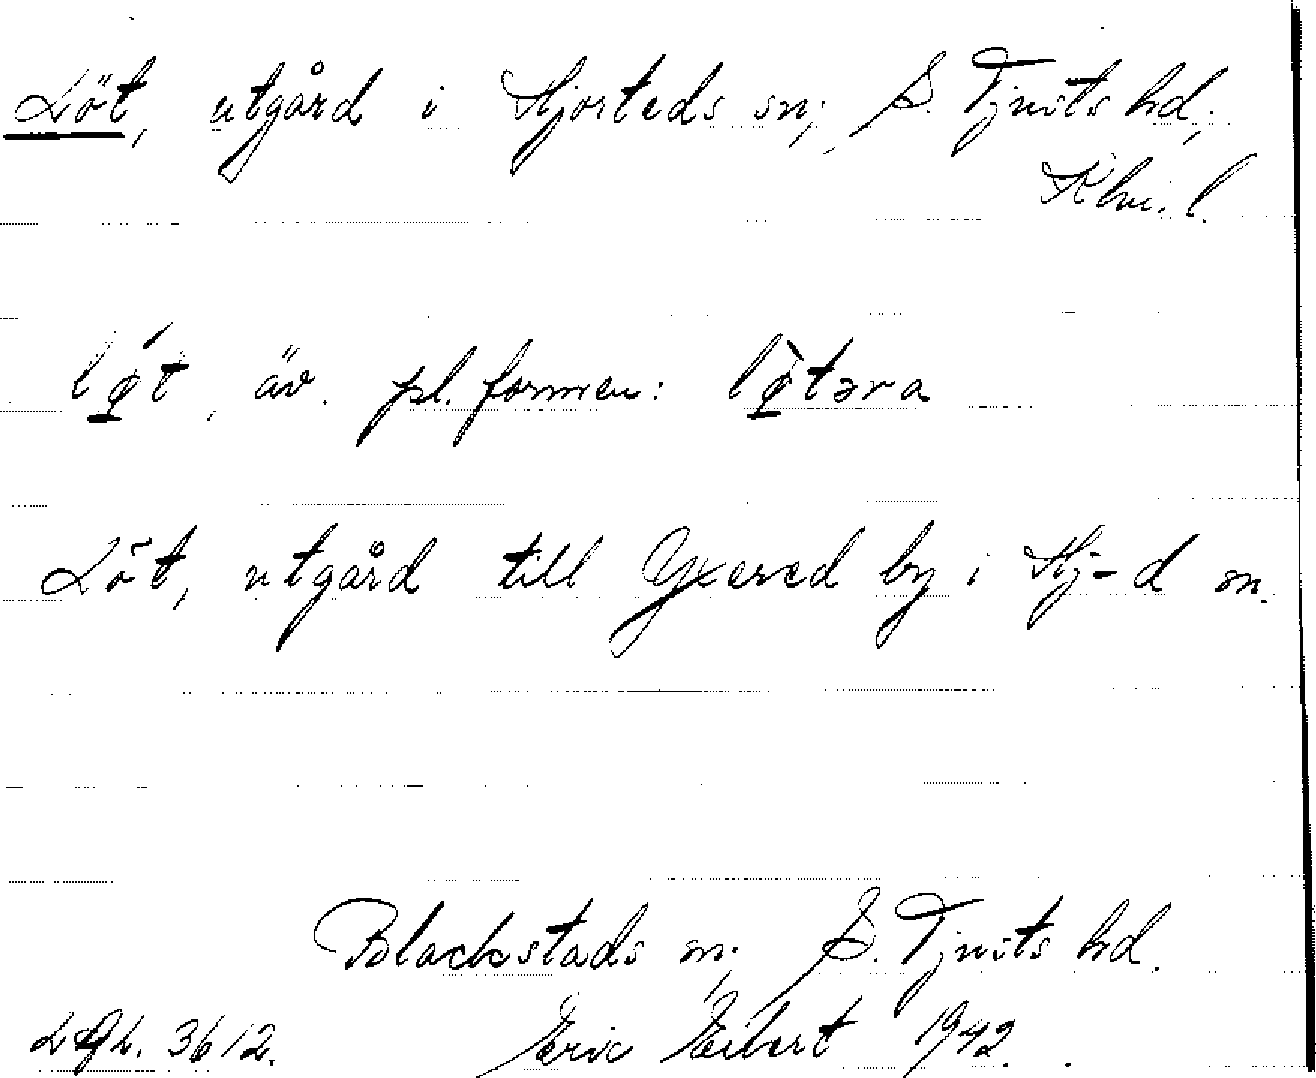 Löt, utgård i Hjorteds sn; S. Tjusts hd;
l.
lǿt, äv. pl. formen: lø̀təra
Löt, utgård till Yxered by i Hj-d sn.
Blackstads sn; S. Tjusts hd.
Eric Eibert 1942.
3612.